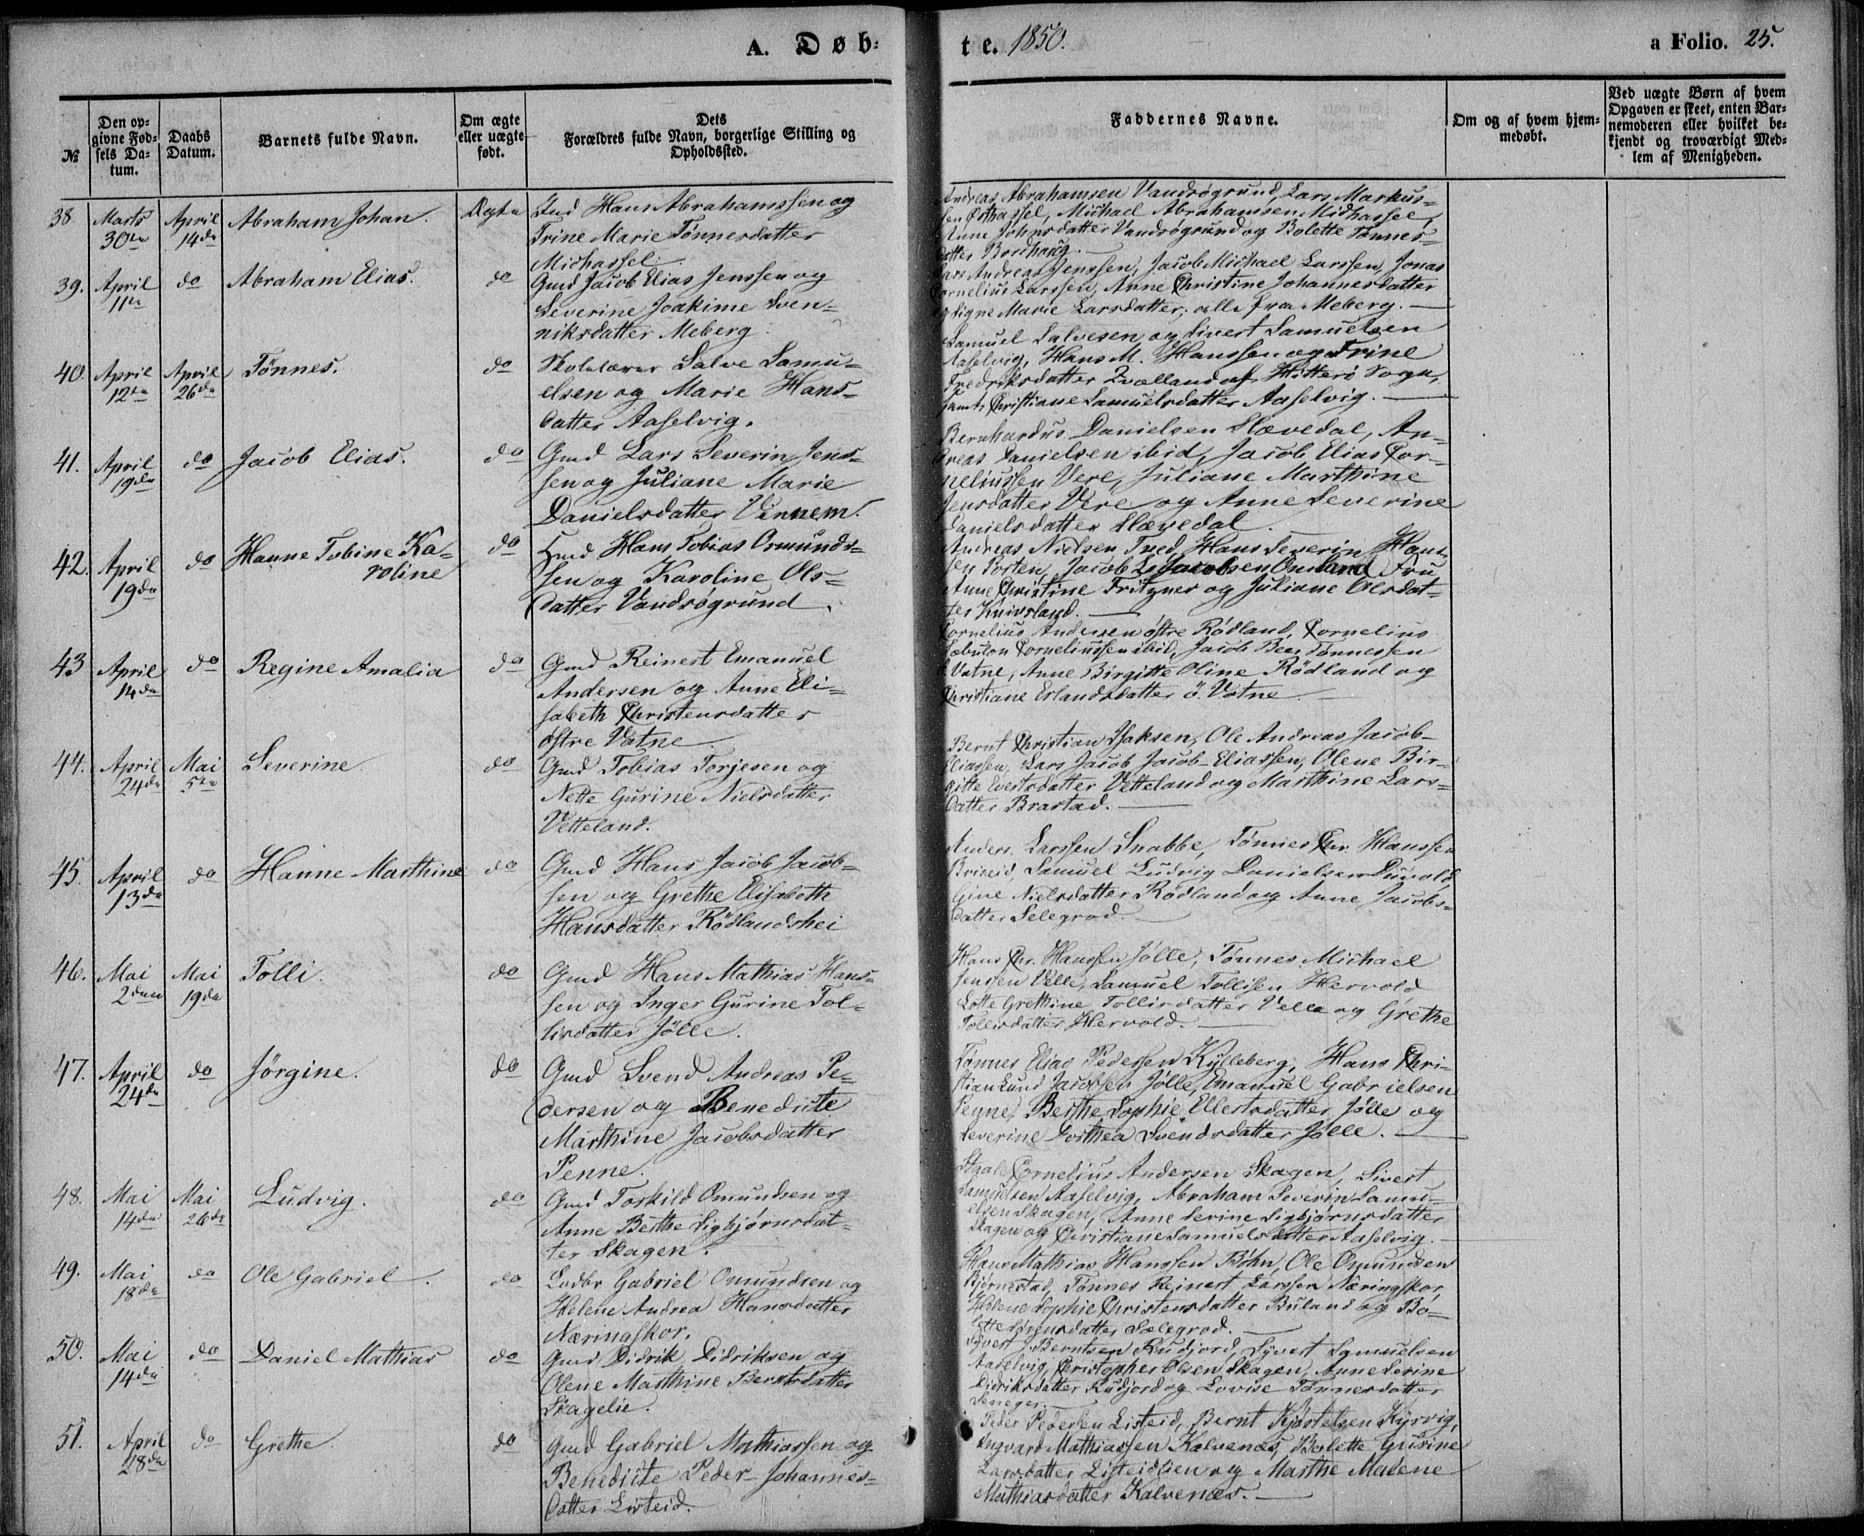 A. Døb-
te. 1850.
a Folio. 25.
№
Den op-
givne Fød-
sels Da-
tum.
Daabs
Datum.
Barnets fulde Navn.
Om ægte
eller uægte
født.
Dets
Forældres fulde Navn, borgerlige Stilling og
Opholdssted.
Faddernes Navne.
Om og af hvem hjem-
medøbt.
Ved uægte Børn af hvem
Opgaven er skeet, enten Bar-
nemoderen eller hvilket be-
kjendt og troværdigt Med-
lem af Menigheden.
38. Marts 30te April 14de Abraham Johan. Ægte
Hans Abrahamssen og
Trine Marie Tønnesdatter
Midhassel.
Andreas Abrahamsen Vandsøgrund, Lars Markus-
sen Østhassel, Michael Abrahamsen Midhassel,
Anne Johnsdatter Vandsøgrund og Bolette Tønnes-
datter Bordhaug
39. April 11te do Abraham Elias. do
Gmd Jacob Elias Jenssen og
Severine Joakime Sven-
niksdatter Meberg.
Lars Andreas Jenssen, Jacob Michael Larssen, Jonas
Cornelius Larssen, Anne Christine Johannesdatter
og Signe Marie Larsdatter, alle fra Meberg.
40. April 12te April 26de Tønnes. do
Skolelærer Salve Samu-
elsen og Marie Hans-
datter Aaselvig.
Samuel Salvesen og Sivert Samuelsen
Aaselvig, Hans M. Hanssen og Trine
Fredriksdatter af Hitterø Sogn,
samt Christiane Samuelsdatter Aaselvig.
41. April 19de do Jacob Elias. do
Gmd Lars Severin Jens-
sen og Juliane Marie
Danielsdatter Vennem.
Bernhardus Danielsen Slævedal, An-
dreas Danielsen ibid, Jacob Elias Cor-
neliussen Vere, Juliane Marthine
Jensdatter Vere og Anne Severine
Danielsdatter Slævedal.
42. April 19de do Hanne Tobine Ka-
roline do
Hmd Hans Tobias Osmunds-
sen og Karoline Ols-
datter Vandsøgrund.
Andreas Nielsen Hans Severin Hans-
sen Jacob Jacobsen Omland Fru
Anne Christine Fritzner og Juliane Olsdat-
ter
43 April 14de do Regine Amalia do
Gmd Reinert Emanuel
Andersen og Anne Eli-
sabeth Christensdatter
østre Vatne.
Cornelius Andersen østre Rødland, Cornelius
Sebulon Corneliussen ibid, Jacob Tønnessen
Vatne, Anne Birgitte Oline Rødland og
Christiane Erlandsdatter ö. Vatne
44. April 24de Mai 5te Severine. do
Gmd Tobias Torjesen og
Nette Gurine Nielsdatter
Vetteland.
Bernt Christian Isaksen, Ole Andreas Jacob-
Eliassen, Lars Jacob Jacob-Eliassen, Olene Bir-
gitte Evertsdatter Vetteland og Marthine Lars-
datter Brastad.
45. April 13de do Hanne Marthine do
Gmd Hans Jacob Jacob-
sen og Grethe Elisabeth
Hansdatter Rödlandshei
Anders Larssen Snabbe, Tønnes Chr. Hanssen
Briseid, Samuel Ludvig Danielsen
Gine Nielsdatter Rödland og Anne Jacobs-
datter Selegrod.
46. Mai 2den Mai 19de Tolli. do
Gmd Hans Mathias Hans-
sen og Inger Gurine Tol-
lisdatter Jölle.
Hans Chr. Hanssen Jölle, Tönnes Michael
Jensen Velle, Samuel Tollisen Hervold
Lotte Grethine Tollisdatter Velle og Grethe
Tollisdatter Hervold.
47. April 24de do Jørgine. do
Gmd Svend Andreas Pe-
dersen og Benedicte
Marthine Jacobsdatter
Penne.
Tønnes Elias Pedersen Kylleberg, Hans Chri-
stian Lund Jacobsen Jölle, Emanuel Gabrielsen
Penne, Berthe Sophie Ellertsdatter Jölle og
Severine Dorthea Svendsdatter Jölle.
48. Mai 14de Mai 26de Ludvig. do
Gmd Torkild Omundsen og
Anne Berthe Sigbjørnsdat-
ter Skagen.
Staale Cornelius Andersen Skagen, Sivert
Samuelsen Aaselvig, Abraham Severin Samu-
elsen Skagen, Anne Serine Sigbjørnsdatter
Skagen og Christiane Samuelsdatter Aaselvig.
49. Mai 18de do Ole Gabriel. do
Lodbr Gabriel Omundsen og
Helene Andrea Hansdatter
Næringskor.
Hans Mathias Hanssen Bøhn, Ole Omundsen
Bjørnestad, Tønnes Reinert Larssen Næringskor,
Helene Sophie Christensdatter Buland og Bo-
lette Sörensdatter Selegrod.
50. Mai 14de do Daniel Mathias do
Gmd Didrik Didriksen og
Olene Marthine Berntsdatter
Skagelie.
Syvert J. Berntsen Rudjord, Syvert Samuelsen
Aaselvig, Christopher Olsen Skagen, Anne Serine
Didriksdatter Rudjord og Lovise Tønnesdatter
51. April 28de do Grethe. do
Gmd Gabriel Mathiassen og
Benedicte Peder-Johannes-
datter Listeid.
Peder Pedersen Listeid, Bernt Kjøstelsen Kyrvig,
Ingvart Mathiassen Kalvenæs, Bolette Gurine
Larsdatter Listeidlien og Marthe Malene
Mathiasdatter Kalvenæs.